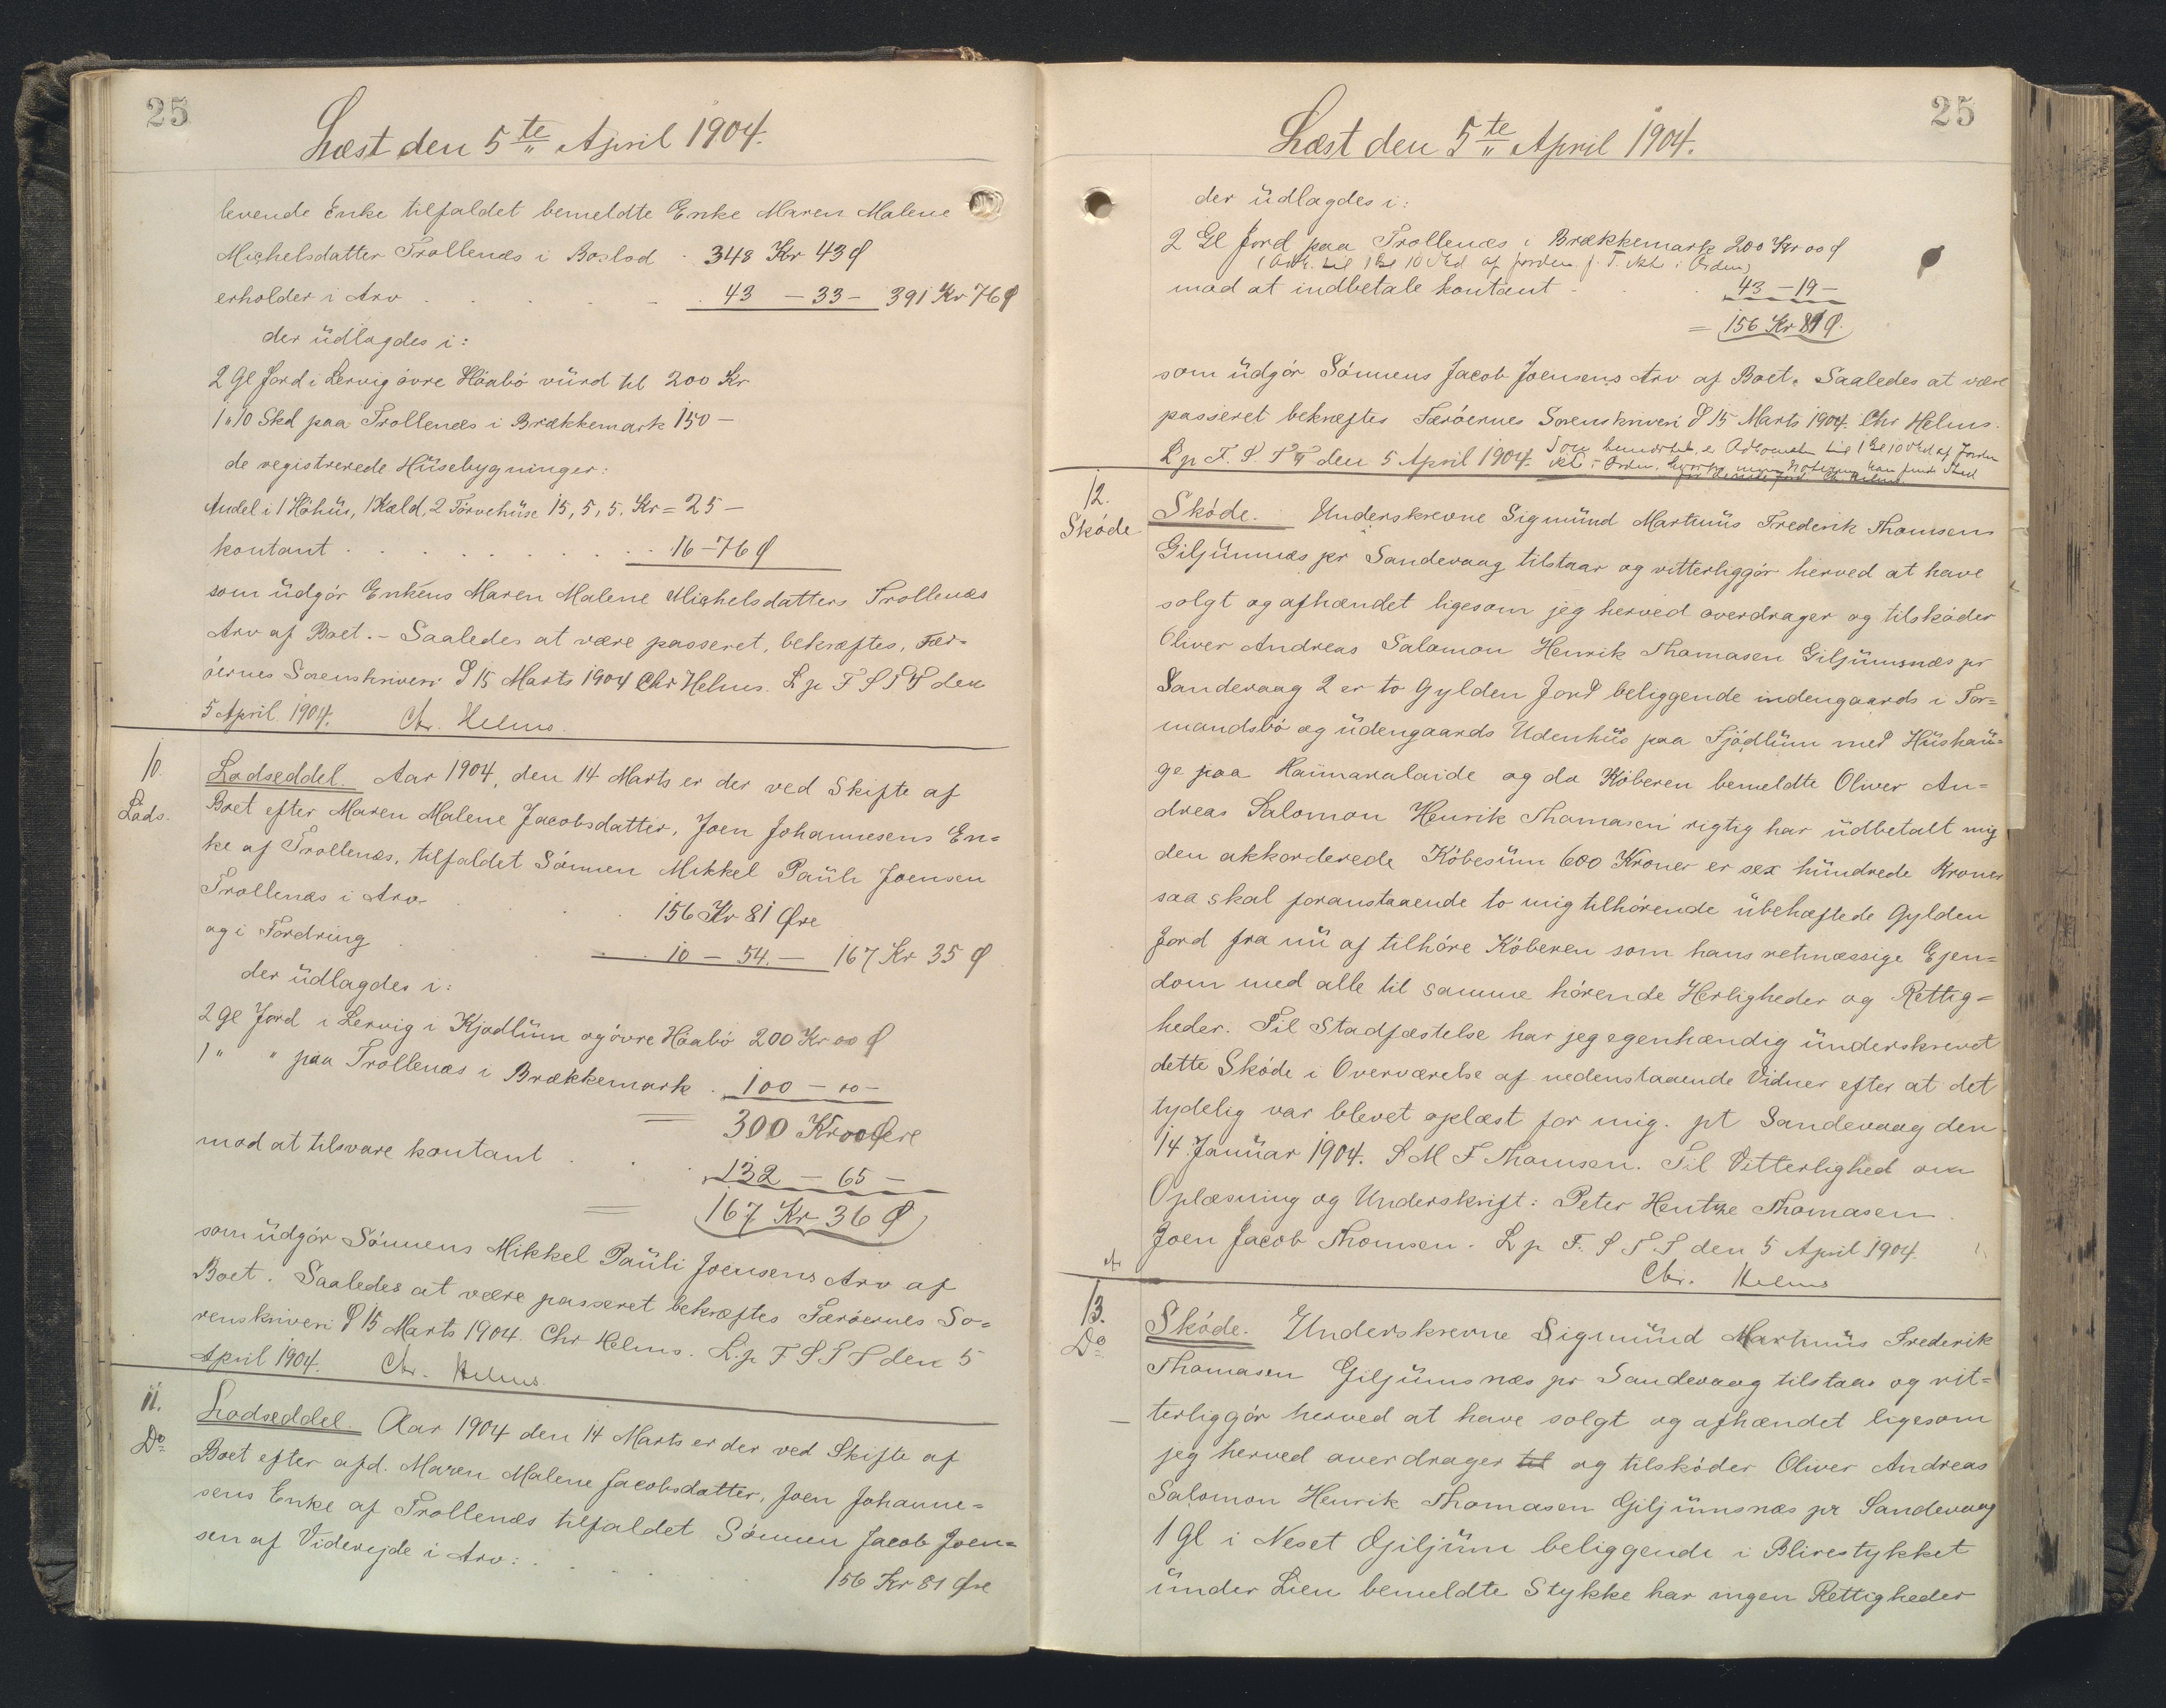 25
Læst den 5te April 1904.
levende Enke tilfaldet bemeldte Enke Maren Malene
Michelsdatter Trollenæs i Boslod . 348 Kr 43 Ø
erholder i Arv . . . . 43 - 33 - 391 Kr 76 Ø
der üdlagdes i:
2 Gl Jord i Lervig övre Höabö vürd til 200 Kr
1 " 10 Skd paa Trollenæs i Brækkemark 150 -
de registrerede Hüsebygninger:
Andel i 1 Höhüs, 1 Kæld, 2 Törvehüse 15, 5, 5. Kr = 25 -
kontant . . . . . . . . . . 16 - 76 Ø
som üdgör Enkens Maren Malene Michelsdatters Trollenæs
Arv af Boet. - Saaledes at være passeret, bekræftes, Fær-
öernes Sorenskriveri D 15 Marts 1904 Chr Helms. L p F S T T den
5 April 1904. Chr. Helms
10.
Lods.
Lodseddel. Aar 1904, den 14 Marts er der ved Skifte af
Boet efter Maren Malene Jacobsdatter, Joen Johannesens En=
ke af Trollenæs, tilfaldet Sönnen Mikkel Paüli Joensen
Trollenæs i Arv . . 156 Kr 81 Øre
og i Fordring . . 10 - 54. - 167 Kr 35 Ø
der üdlagdes i:
2 Gl Jord i Lervig i Kjadlüm og övre Höabö 200 Kr 00 Ø
1 " " paa Trollenæs i Brækkemark . 100 - 00 -
= 300 Kr 00 Øre
mod at tilsvare kontant . . . 132 - 65 -
= 167 Kr 36 Ø
som üdgör Sönnens Mikkel Paüli Joensens Arv af
Boet. Saaledes at være passeret bekræftes Færöernes So=
renskriveri D 15 Marts 1904. Chr Helms. L. p F S T T den 5
April 1904. Chr. Helms
11.
Do
Lodseddel. Aar 1904 den 14 Marts er der ved Skifte af
Boet efter afd. Maren Malene Jacobsdatter, Joen Johanne=
sens Enke af Trollenæs tilfaldet Sönnen Jacob Joen=
sen af Viderejde i Arv: . . . . 156 Kr 81 Øre
25
Læst den 5te April 1904.
der üdlagdes i:
2 Gl Jord paa Trollenæs i Brækkemark 200 Kr 00 Ø
til 1 Gl 10 Skd af Jorden
mod at indbetale kontant . . 43 - 19 -
= 156 Kr 81 Ø
som üdgör Sönnens Jacob Joensens Arv af Boet. Saaledes at være
passeret bekræftes Færöernes Sorenskriveri D 15 Marts 1904. Chr Helms.
L p F. S. T T den 5 April 1904.
til 1 Gl 10 Skd af Jorden
12.
Sköde
Sköde. Underskrevne Sigmünd Martinüs Frederik Thomsen
Giljümnæs pr Sandevaag tilstaar og vitterliggör herved at have
solgt og afhændet ligesom jeg herved overdrager og tilsköder
Oliver Andreas Salomon Henrik Thomasen Giljümsnæs pr
Sandevaag 2 er to Gylden Jord beliggende indengaards i Tor=
mandsbö og üdengaards Udenhüs paa Fjödlüm med Hüshaü=
ge paa Haümaralaide og da Köberen bemeldte Oliver An=
dreas Salomon Henrik Thomasen rigtig har üdbetalt mig
den akkorderede Köbesüm 600 Kroner er sex hündrede Kroner
saa skal foranstaaende to mig tilhörende übehæftede Gylden
Jord fra nü af tilhöre Köberen som hans retmæssige Ejen=
dom med alle til samme hörende Herligheder og Rettig=
heder. Til Stadfæstelse har jeg egenhændig ünderskrevet
dette Sköde i Overværelse af nedenstaaende Vidner efter at det
tydelig var blevet oplæst for mig. pt Sandevaag den
14 Januar 1904. S M F Thomsen. Til Vitterlighed om
Oplæsning og Underskrift: Peter Hentze Thomasen
Joen Jacob Thomsen. L p F. S T T den 5 April 1904.
Chr. Helms
13.
Do
Sköde. Underskrevne Sigmünd Martinüs Frederik
Thomasen Giljümsnæs pr Sandevaag tilstaar og vit=
terliggör herved at have solgt og afhændet ligesom
jeg herved overdrager til og tilsköder Oliver Andreas
Salomon Henrik Thomasen Giljümsnæs pr Sandevaag
1 Gl i Neset Giljüm beliggende i Blirestykket
ünder Lien bemeldte Stykke har ingen Rettigheder